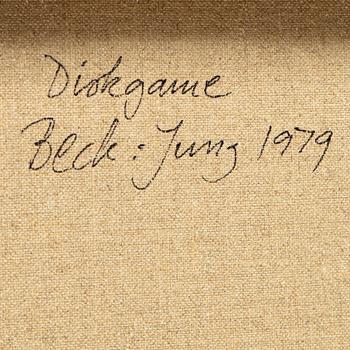 Diskgame
Beck: Jung 1979